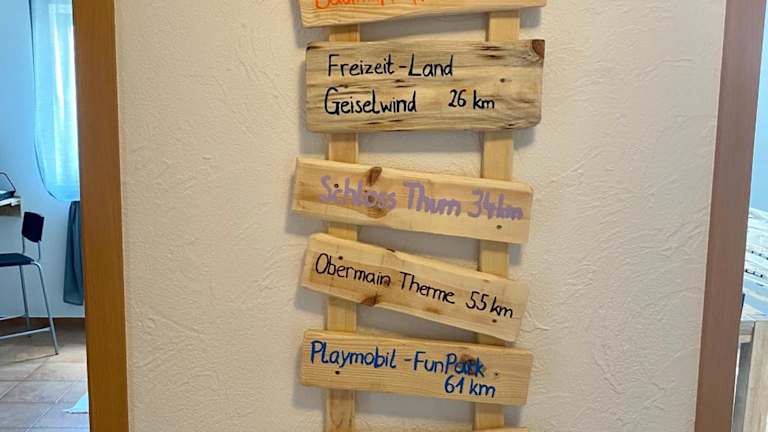 Freizeit-Land
Geiselwind 26 km
Schloss Thurn 34km
Obermain Therme 55 km
Playmobil-FunPark
61 km